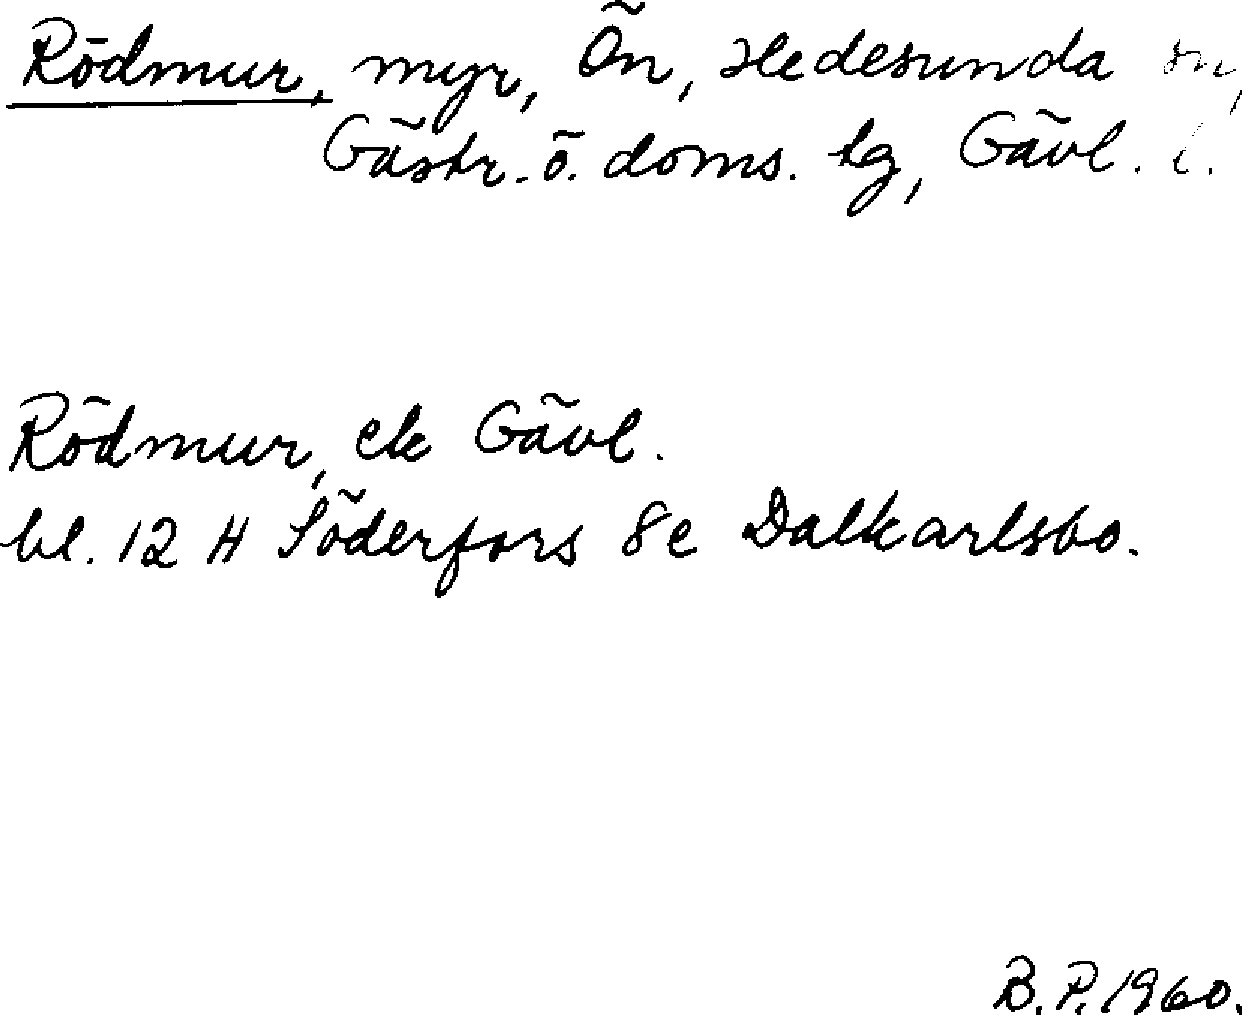 Rödmur, myr, Ön, Hedesunda sn,
Gästr. ö. doms. tg, Gävl. l.
Rödmur, ek Gävl.
bl. 12 H Söderfors 8e Dalkarlsbo.
B.P. 1960.